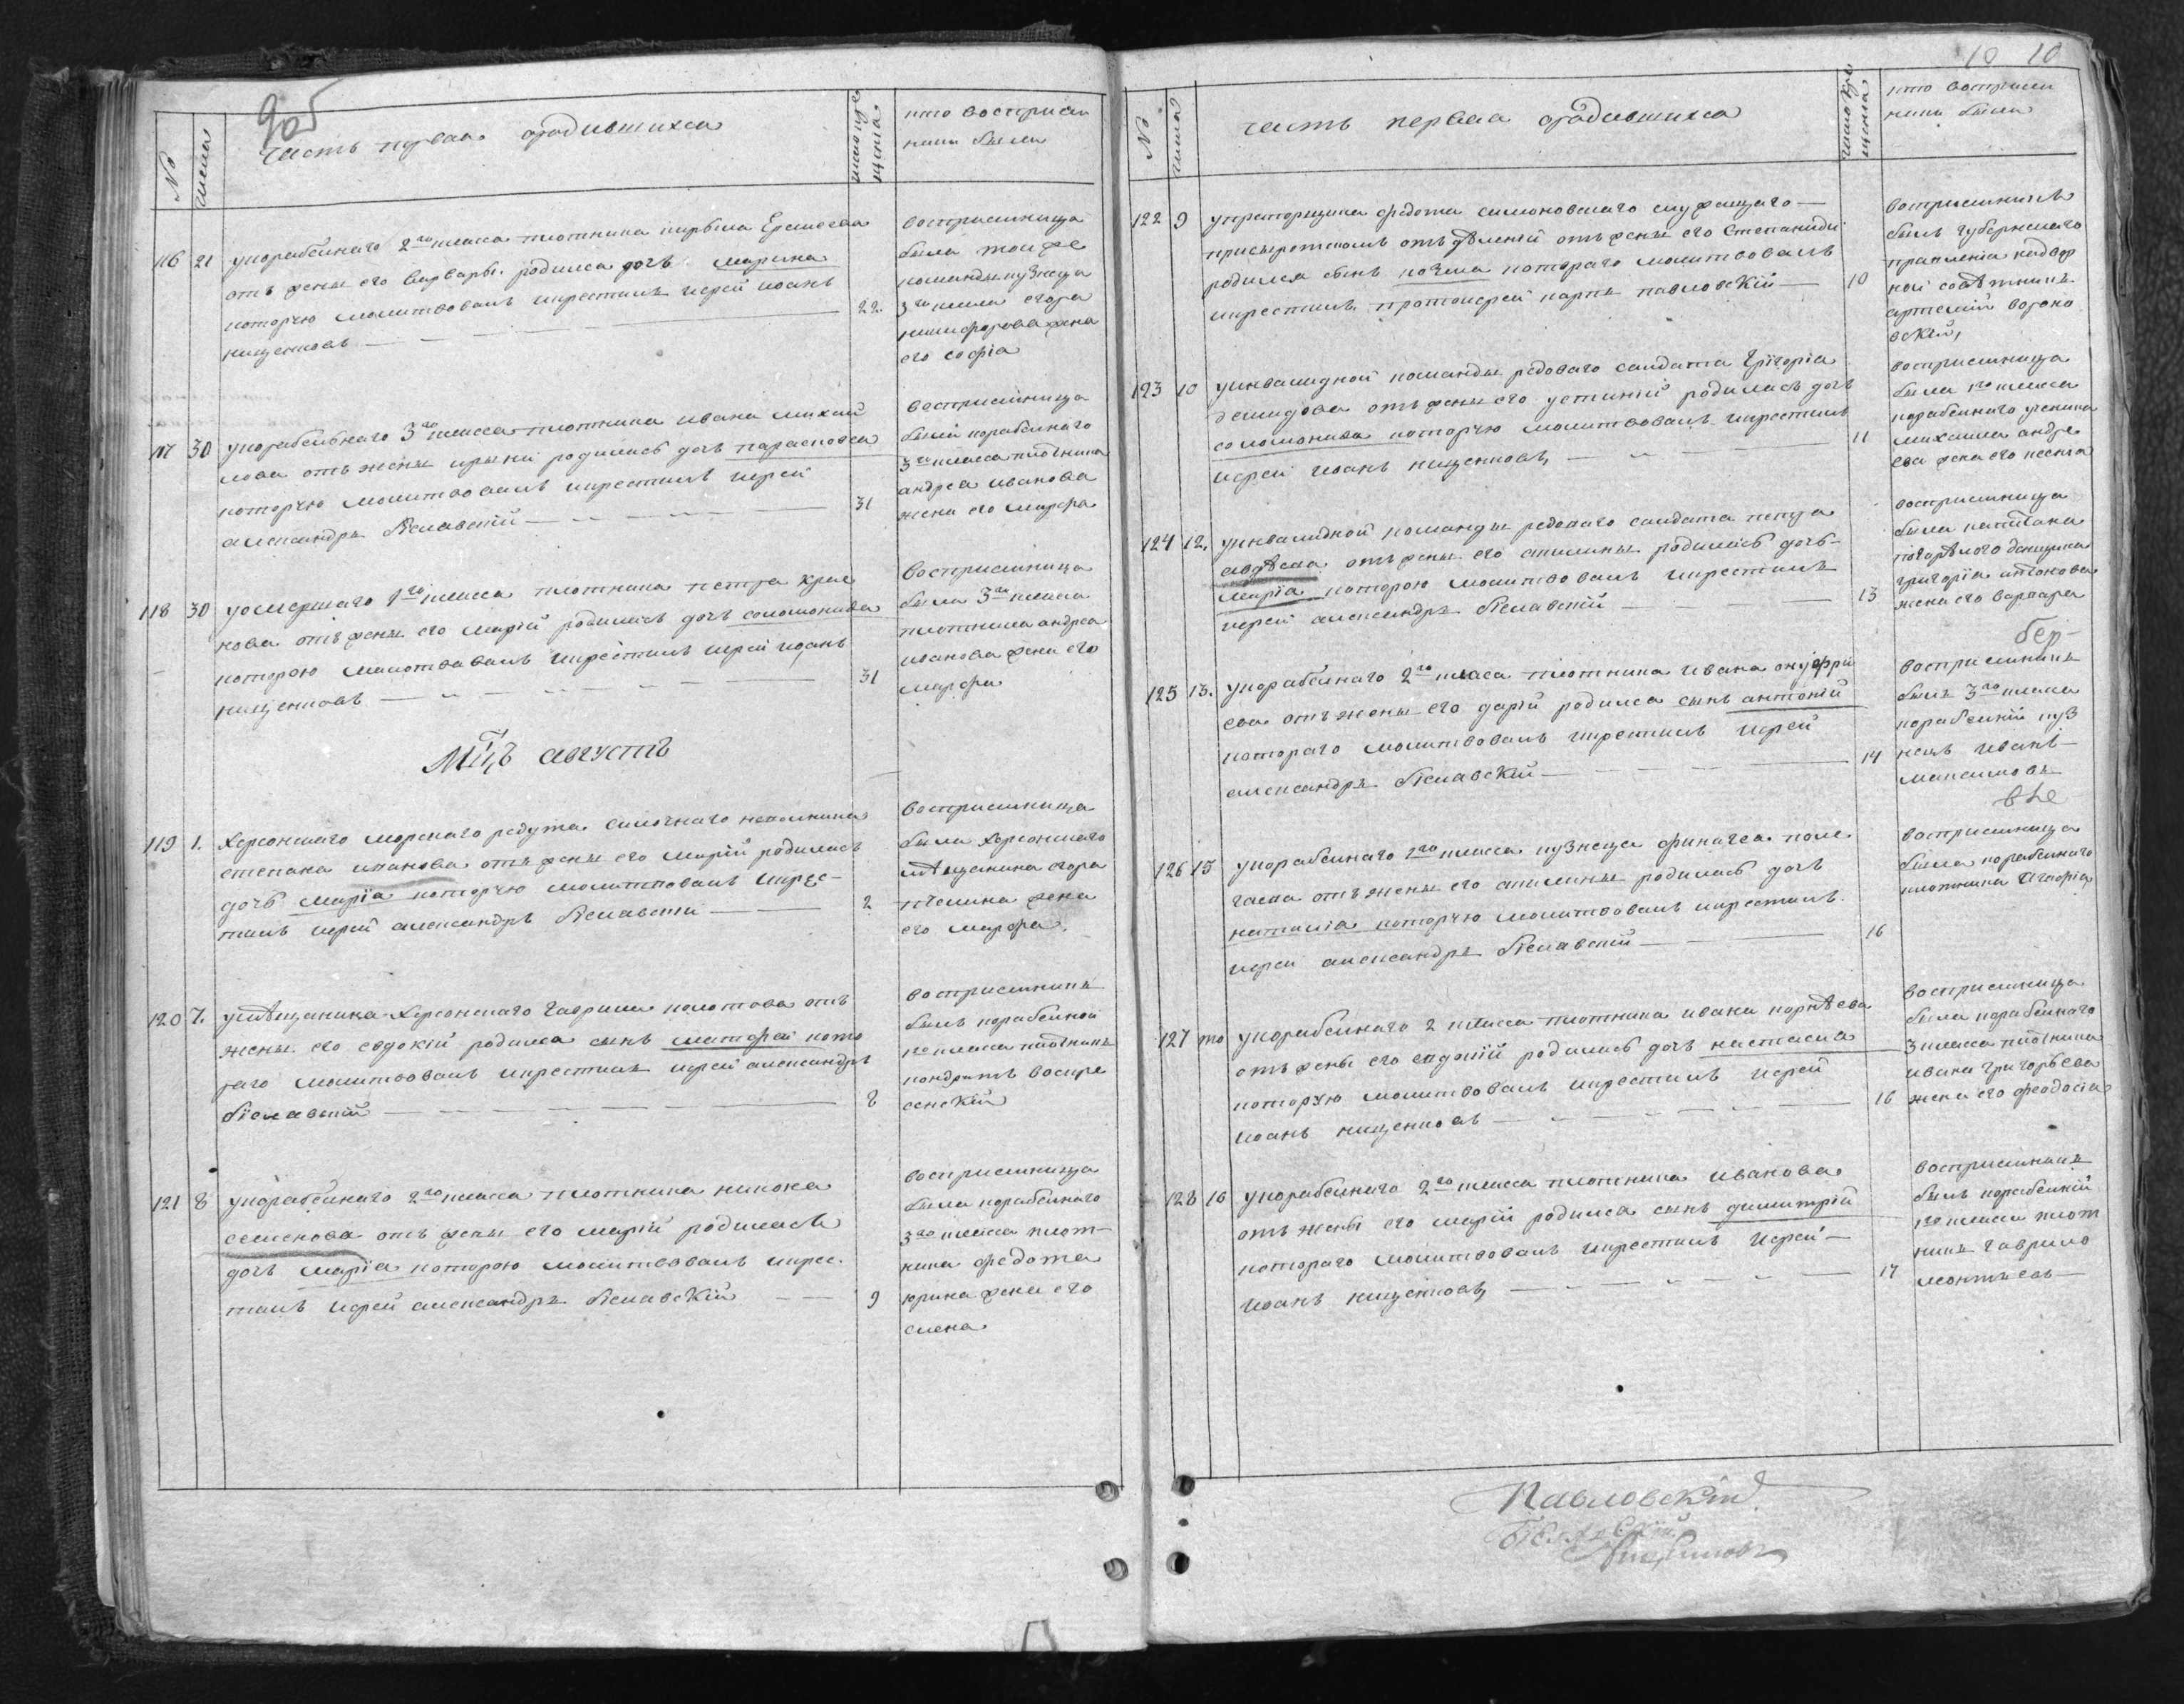 9об
№
числа
часть первая ородившихся
число кре
щенiя
кто восприем
ники были
116 21 укорабелнаго 2го класса плотника кирыла Ермолаева
отъ жены его варвары родилса дочъ марина
которую молитвовалъ икрестилъ иерей иоанъ
нищенковъ 22.
восприемница
была тойже
команды кузнеца
3го класа егора
никифорова жена
его софiа
117 30 укорабелнаго 3го класса плотника ивана михай
лова отъ жены ирыни родилась дочъ парасковеа
которую молитвовалъ икрестилъ иерей
александръ белавскiй 31
восприемница
была корабелнаго
3го класса плотника
андрея иванова
жена его марфа
118 30 уомершаго 1го класса плотника петра
кова отъ жены его марiй родилась дочъ соломонида
которою молитвовалъ икрестилъ иерей иоанъ
нищенковъ 31
восприемница
была 3го класа
плотника андреа
иванова жена его
марфа
Мцъ августъ
119 1. Херсонскаго морскаго редута
степана иванова отъ жены его марiй родилась
дочъ марiа которую молитвовалъ икрес-
тилъ иерей александръ белавскiй 2
восприемница
была херсонскаго
мѣщанина егора
пчелина жена
его марфа.
120 7. умѣщаника Херсонскаго гаврила колотова отъ
жены его евдокiй родилса сынъ матфей кото
раго молитвовалъ икрестилъ иерей александръ
белавскiй 8
восприемникъ
былъ корабелной
1го класса плотникъ
кондратъ воскре
сенскiй
121 8 укорабелнаго 2го класса плотника никона
семенова отъ жены его марiй родиласъ
дочъ марiа которою молитвовалъ икрес.
тилъ иерей александръ белавскiй 9
восприемница
была корабелнаго
3го класса плот-
ника федота
юрина жена его
елена
10 10
№
числа
часть перваа ородившихса
число кре
щенiя
кто восприем
ники были
122 9 укрепорщика федота симоновскаго служащаго
отъ жены его степаниды
родился сынъ козма котораго молитвовалъ
икрестилъ протоиерей карпъ павловскiй 10
восприемникъ
былъ губернскаго
правленiа надвор
ной советникъ
артемiй ворона
вскiй,
123 10 уинвалидной команды редоваго салдата григорiа
демидова отъ жены его устинiй родиласъ дочъ
соломонида которую молитвовалъ икрестилъ
иерей иоанъ нищенковъ, 11
восприемница
была 1го класса
корабелнаго ученика
михаила андре
ева жена его ксенiа
124 12. уинвалидной команды редоваго салдата петра
авдѣева отъ жены его акилины родиласъ дочъ-
марiа которою молитвовалъ икрестилъ
иерей александръ белавскiй 13
восприемница
была капитана
денщика
григорiа антонова
жена его варвара
бер-
125 13. укорабелнаго 2го класа плотника ивана онуфри
ева отъ жены его дарiй родилса сынъ антонiй
котораго молитвовалъ икрестилъ иерей
александръ белавскiй 14
восприемникъ
былъ 3го класа
корабелнiй куз
нецъ иванъ
максимовъ
126 15 укорабелнаго 2го класса кузнеца
отъ жены его акилины родиласъ дочъ
наталiа которую молитвовалъ икрестилъ.
иерей александръ белавскiй 16
восприемница
была корабелнаго
плотника
127 то укорабелнаго 2 класса плотника ивана корнѣева
отъ жены его евдокiй родиласъ дочъ настасиа
которую молитвовалъ икрестилъ иерей
иоанъ нищенковъ 16
восприемница
была карабелнаго
3 класса плотника
ивана григорьева
жена его феодосiа
128 16 укорабелнаго 2го класса плотника иванова
отъ жены его марiй родилса сынъ димитрiй
котораго молитвовалъ икрестилъ иерей
иоанъ нищенковъ, 17
восприемникъ
былъ корабелнiй
1го класса плот
никъ гаврило
леонтьевъ
Павловскiй.
Белавскiй
Нищенковъ